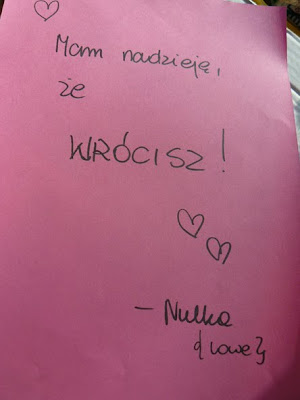 Mam nadzieję,
że
WRÓCISZ!
– Nulka